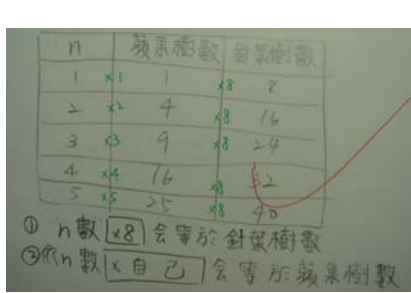 n 蘋果樹數 針葉樹數
1 x1 1 x8 8
2 x2 4 x8 16
3 x3 9 x8 24
4 x4 16 x8 32
5 x5 25 x8 40
① n數 x8 会等於針葉樹數
② n數 x自己 会等於蘋果樹數